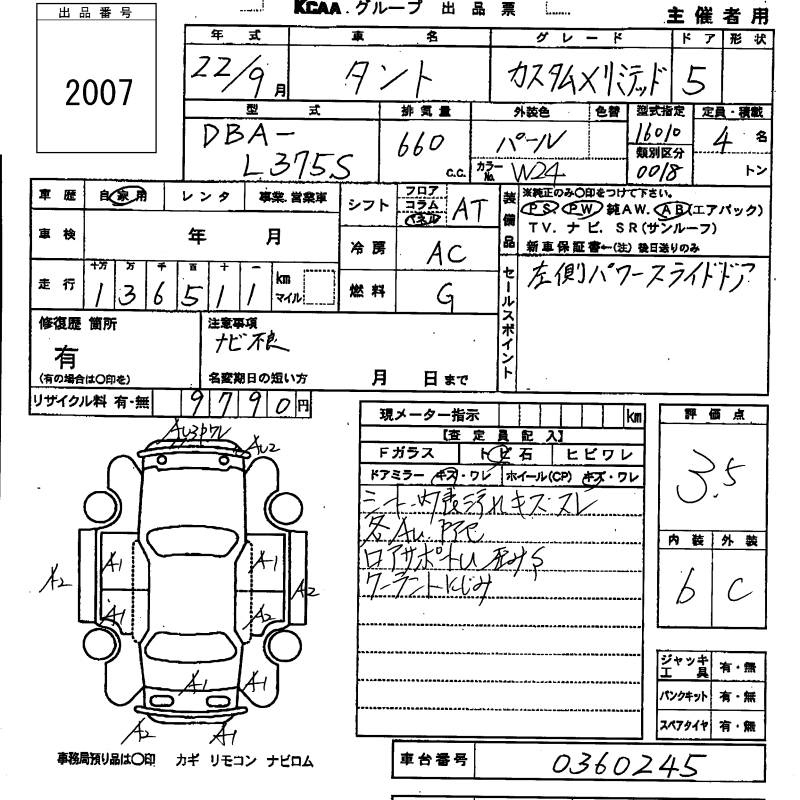 出品番号
2007
KCAA.グループ 出品票
主催者用
年式 車名 グレード ドア 形状
22/9月 タント カスタムXリミテッド 5
型式 排気量 外装色 色替 型式指定 定員・積載
DBA-L375S 660 c.c. パール 16010 4名
カラーNo. W24 類別区分 0018 トン
車歴 自家用 レンタ 事業.営業車
シフト フロア コラム パネル AT
装備品
※純正のみ○印をつけて下さい。
PS. PW 純AW. AB(エアバック)
TV. ナビ. SR(サンルーフ)
新車保証書←(注) 後日送りのみ
車検 年 月
冷房 AC
走行 十万 万 千 百 十 一
136511 km マイル
燃料 G
セールスポイント
左側パワースライドドア
修復歴 箇所
有
(有の場合は○印を)
注意事項
ナビ不良
名変期日の短い方 月 日まで
リサイクル料 有・無 9790円
現メーター指示 km
【査定員記入】
Fガラス トビ石 ヒビワレ
ドアミラー キズ・ワレ ホイール(CP) キズ・ワレ
シート、内張汚れキズ・スレ
各AU
ロアサポートU
クーラントにじみ
評価点
3.5
内装 外装
6 C
A2
A1
A1
A1
A2
A2
A1
A1
A2
A1
AU2
ジャッキ工具 有・無
パンクキット 有・無
スペアタイヤ 有・無
事務局預り品は○印 カギ リモコン ナビロム
車台番号 0360245